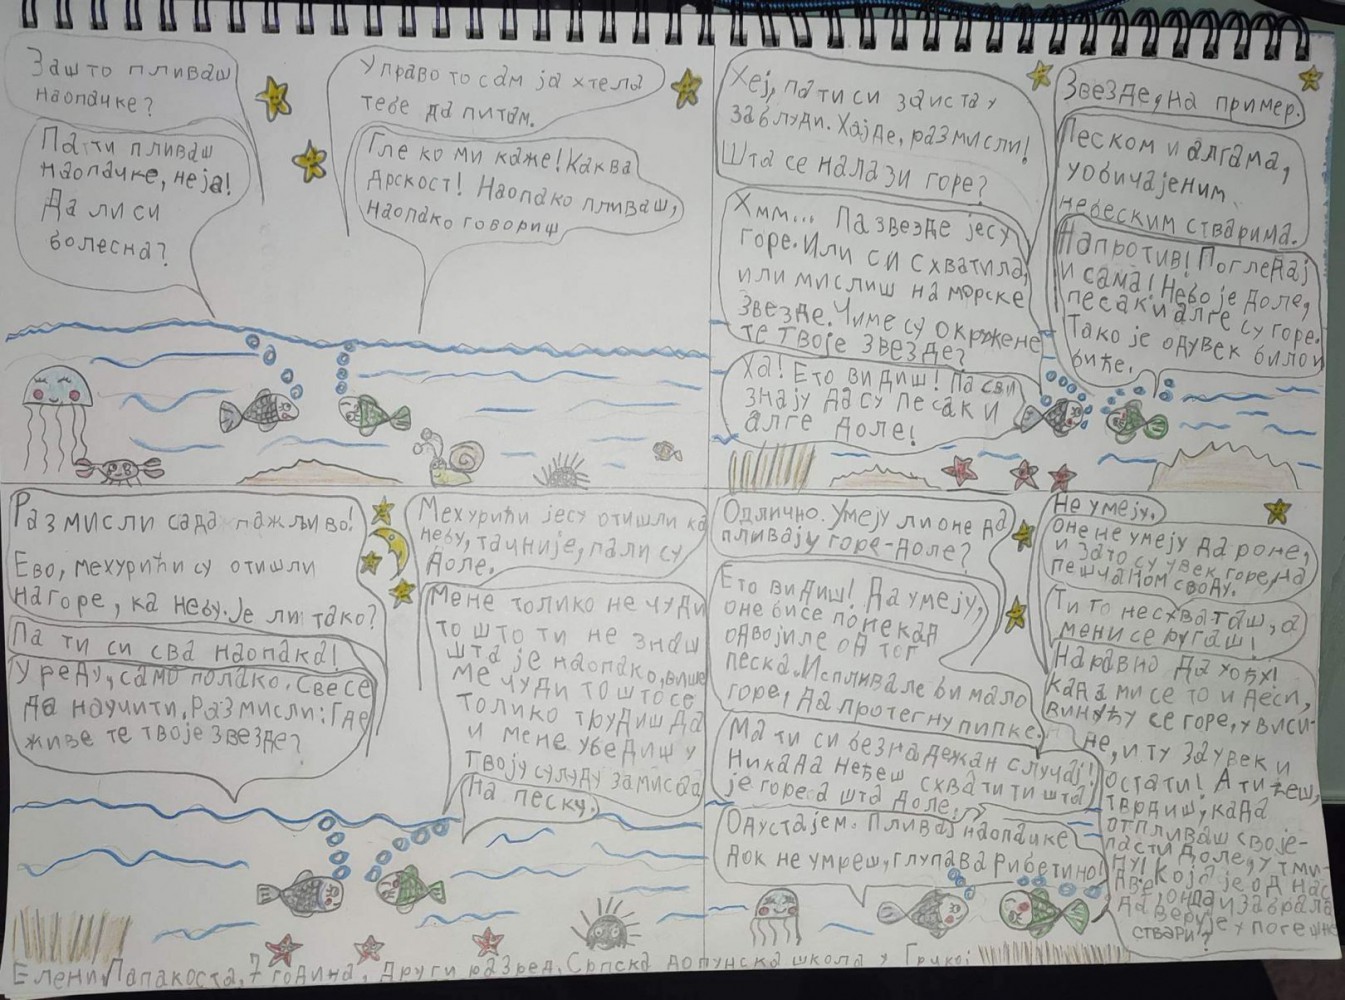 Зашто пливаш
наопачке?
Управо то сам ја хтела
тебе да питам.
Па ти пливаш
наопачке, не ја!
Да ли си
болесна?
Гле ко ми каже! Каква
дрскост! Наопако пливаш,
наопако говориш
Хеј, па ти си заиста у
заблуди. Хајде, размисли!
Шта се налази горе?
Звезде, на пример.
Хмм... Па звезде јесу
горе. Или си схватила,
или мислиш на морске
звезде. Чиме су окружене
те твоје звезде?
Песком и алгама,
уобичајеним
небеским стварима.
Ха! Ето видиш! Па сви
знају да су песак и
алге доле!
Напротив! Погледај
и сама! Небо је доле,
песак и алге су горе.
Тако је одувек било и
биће.
Размисли сада пажљиво!
Ево, мехурићи су отишли
нагоре, ка небу. Је ли тако?
Мехурићи јесу отишли ка
небу, тачније, пали су
доле.
Па ти си сва наопака!
Мене толико не чуди
то што ти не знаш
шта је наопако, више
ме чуди то што се
толико трудиш да
и мене убедиш у
твоју сулуду замисао
У реду, само полако. Све се
да научити. Размисли: Где
живе те твоје звезде?
На песку.
Одлично. Умеју ли оне да
пливају горе-доле?
Не умеју.
Оне не умеју да роне,
и зато су увек горе, на
пешчаном своду.
Ето видиш! Да умеју,
оне би се понекад
одвојиле од тог
песка. Испливале би мало
горе, да протегну пипке.
Ти то не схваташ, а
мени се ругаш!
Ма ти си безнадежан случај!
Никада нећеш схватити шта
је горе а шта доле.
Наравно да хоћу!
када ми се то и деси,
винућу се горе, у виси-
не, и ту заувек и
остати! А ти ћеш,
тврдиш, када
отпливаш своје,
пасти доле, у тми-
ну! Која је од нас
две онда изабрала
да верује у погрешне
ствари?
Одустајем. Пливај наопачке
док не умреш, глупава рибетино!
Елени Папакоста, 7 година, други разред, Српска допунска школа у Грчкој